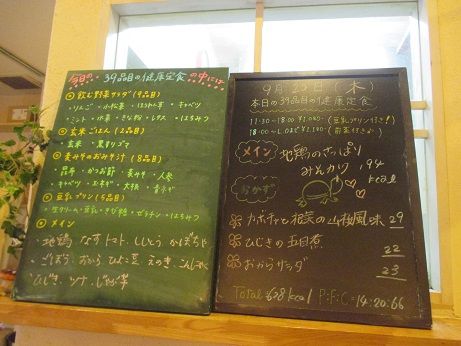 今日の39品目の健康定食の中には
◎飲む野菜サラダ(9品目)
・りんご・小松菜・ほうれん草・キャベツ
・ミント・水菜・きな粉・レタス・はちみつ
◎玄米ごはん(2品目)
・玄米・黒すりゴマ
◎麦みそのおみそ汁(8品目)
・昆布・かつお節・麦みそ・人参
・キャベツ・玉ネギ・大根・青ネギ
◎豆乳プリン(5品目)
・生クリーム・豆乳・きび糖・ゼラチン・はちみつ
◎メイン
・地鶏、なす、トマト、ししとう、かぼちゃ
ごぼう、おから、ひよこ豆、えのき、こんにゃく
ひじき、ツナ、じゃが芋
9月20日(木)
本日の39品目の健康定食
11:30~18:00
(豆乳プリン付き!)
18:00~L.O.まで
メイン
地鶏のさっぱり
みそカツ 194
kcal
おかず
カボチャと根菜の山椒風味 29
ひじきの五目煮 22
おからサラダ 23
Total 638kcal P:F:C=14:20:66